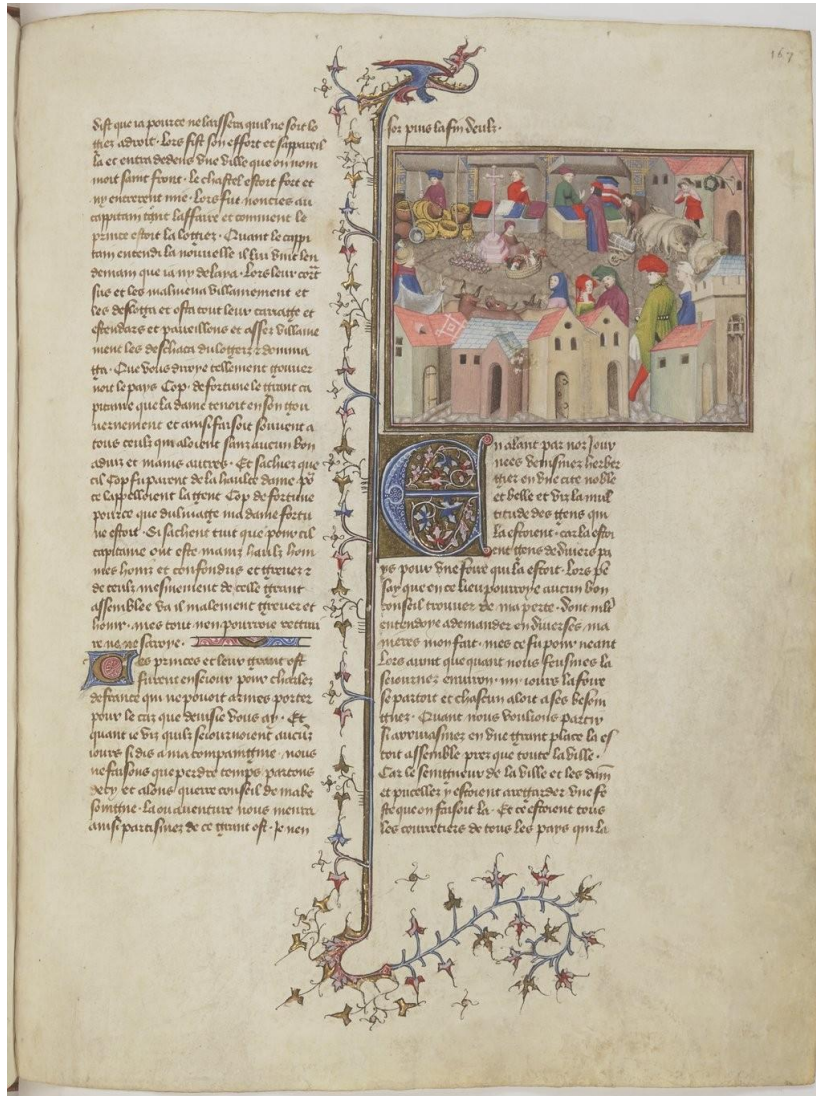 167
dist que ia pource ne laissera quil ne soit lo
gier a droit. Lors fist son effort et sappareil
la et entra dedens une ville que on nom
moit saint front. Le chastel estoit fort et
ny entrerent mie. Lors fut noncies au
cappitain tout laffaire et comment le
prince estoit la logiez. Quant le cappi
tain entendi la nouvelle il lui vint len
demain que ia ny delaya. Lors leur court
sus et les malmena villainement et
les desloga et osta tout leur cariage et
estendars et paveillons et assez villaine
ment les deschaca du logeiz
ga. Que vous diroye tellement gouver
noit le pays Cop. de fortune le grant ca
pitaine que la dame tenoit en son gou
vernement et ainsi faisoit souvent a
tous ceulz qui aloient sanz aucun bon
aduiz et mains autres. Et sachiez que
cil Cop fu parent de la haulte dame. po
ce lappelloient la gent Cop de fortune
pource que du linage ma dame fortu
ne estoit. Si sachent tuit que pour cil
capitaine ont este mainz haulz hom
mes honiz et confondus et grevez
de ceulz mesmement de celle grant
assemblee va il malement grever et
honir. mes tout nen pourroie
re ne ne saroye.
Ces princes et leur grant ost
furent en seiour pour charles
de france qui ne povoit armes porter
pour le cas que devisie vous ay. Et
quant ie viz quilz seiournoient aucuns
iours si dis a ma compaignie. nous
ne faisons que perdre temps. partons
de cy et alons querre conseil de ma be
soingne. la ou aventure nous menra
ainsi partismez de ce grant ost. Je nen
sor puis la fin deulz.
En alant par noz iour
nees venismez herber
gier en une cite noble
et belle et viz la mul
titude des gens qui
la estoient. car la estoi
ent gens de divers pa
ys pour une foire qui la estoit. Lors pe
say que en ce lieu pourroye aucun bon
conseil trouver de ma perte. dont mlt
entendoye a demander en diverses ma
nieres mon fait. mes ce fu pour neant
Lors avint que quant nous feusmes la
seiourner environ .iiii. iours la foire
se partoit et chascun aloit a ses besoin
gnez. Quant nous voulions partir
Si arrivasmez en une grant place la es
toit assemble prez que toute la ville.
Car le seingneur de la ville et les dam
et pucellez y estoient a regarder une fe
ste que on faisoit la. Et ce estoient tous
les couretiers de tous les pays qui la